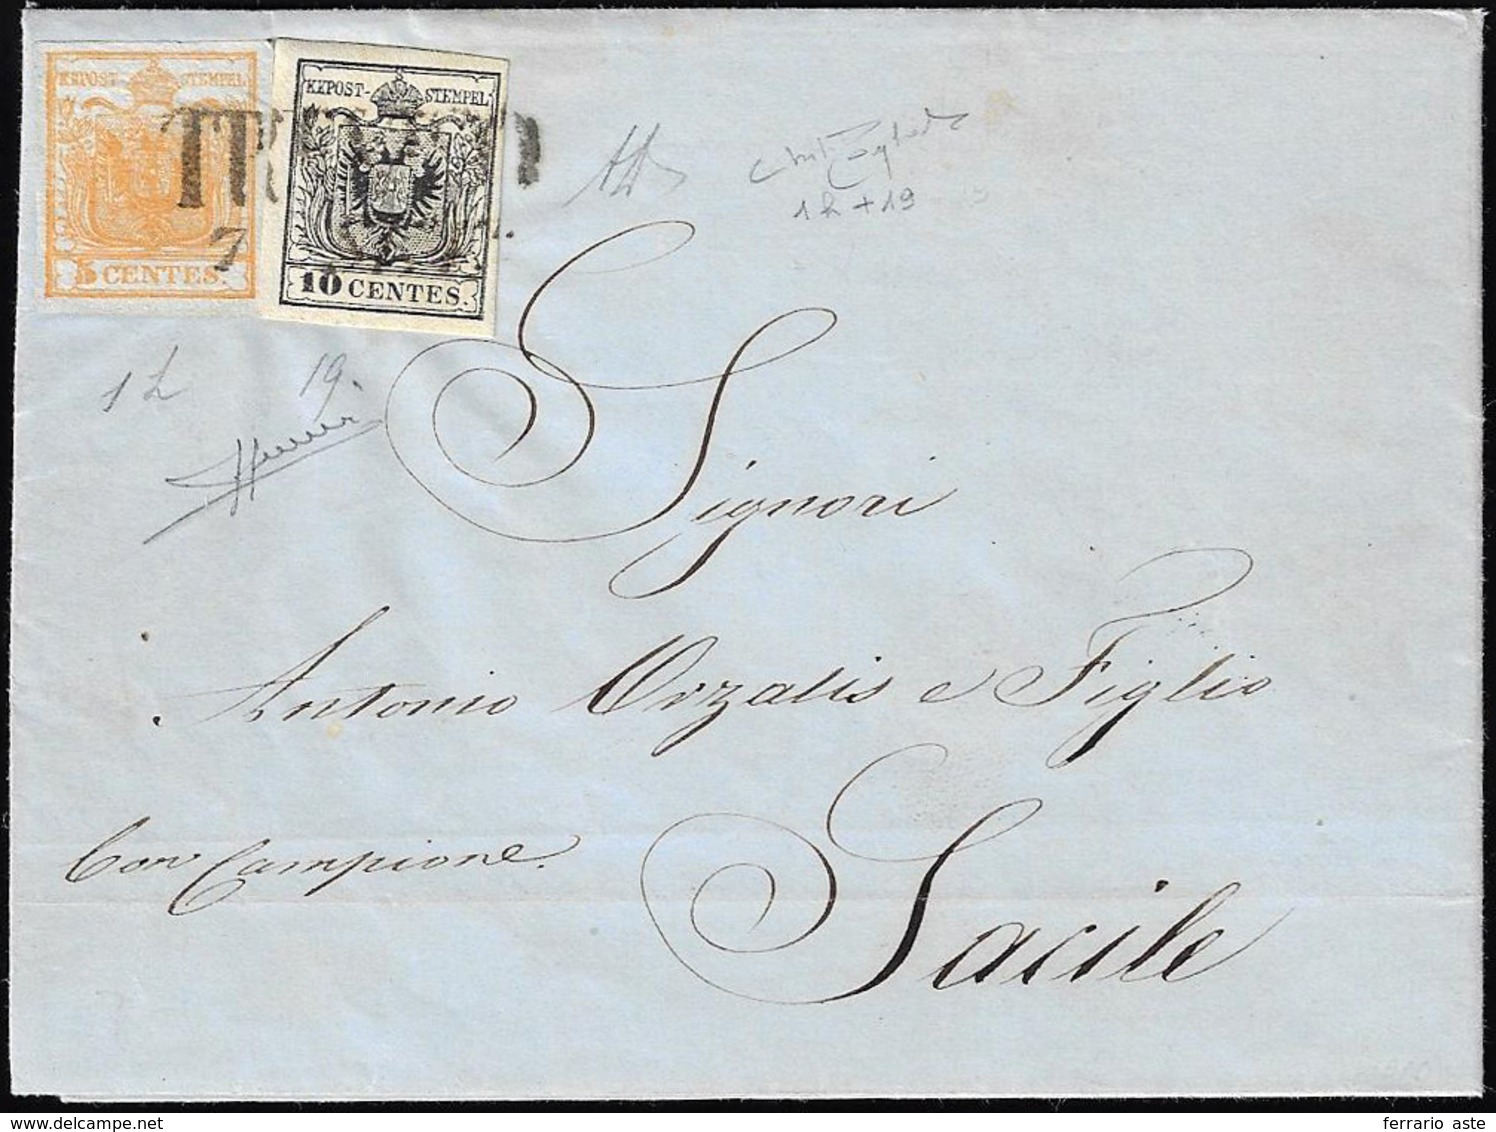 KKPOST-STEMPEL
5 CENTES.
KKPOST-STEMPEL
10 CENTES.
7
1h+19
1h 19.
Signori
Antonio Orzalis e Figlio
Con Campione.
Sacile
ferrario aste